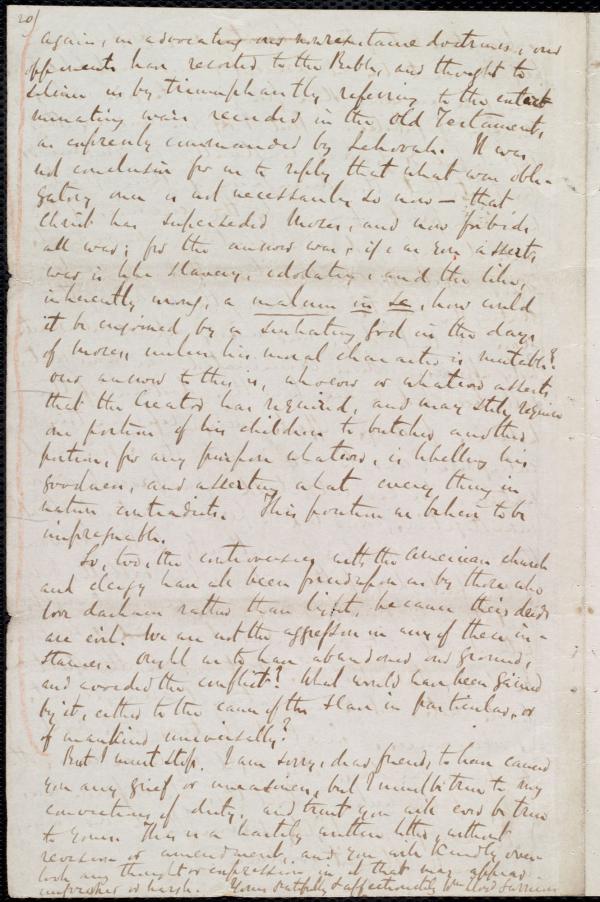 20/
again, in advocating our non-resistance doctrines, our
opponents have resorted to the Bible, and thought to
silence us by triumphantly referring to the exter-
minating wars recorded in the Old Testament,
as expressly commanded by Jehovah. It was
not conclusive for us to reply that what was obli-
gatory once is not necessarily so now — that
Christ has superseded Moses, and now forbids
all war; for the answer was, if, as you assert,
war is like slavery, idolatry, and the like,
inherently wrong, a malum in se, how could
it be enjoined by a sin-hating God in the days
of Moses, unless his moral character is mutable?
Our answer to this is, whoever or whatever asserts
that the Creator has required, and may still require
one portion of his children to butcher another
portion, for any purpose whatever, is libelling his
goodness, and asserting what every thing in
nature contradicts. This position we believe to be
impregnable.
So, too, the controversies with the American church
and clergy have all been forced upon us by those who
love darkness rather than light, because their deeds
are evil. We are not the aggressors in any of these in-
stances. Ought we to have abandoned our ground,
and avoided the conflict? What would have been gained
by it, either to the cause of the slave in particular, or
of mankind universally?
But I must stop. I am sorry, dear friend, to have caused
you any grief or uneasiness, but I must be true to my
convictions of duty, and trust you will ever be true
to yours. This is a hastily written letter, without
revision or amendment, and you will kindly over-
look any thought or expression in it that may appear
imprecise or harsh. Yours faithfully & affectionately Wm Lloyd Garrison